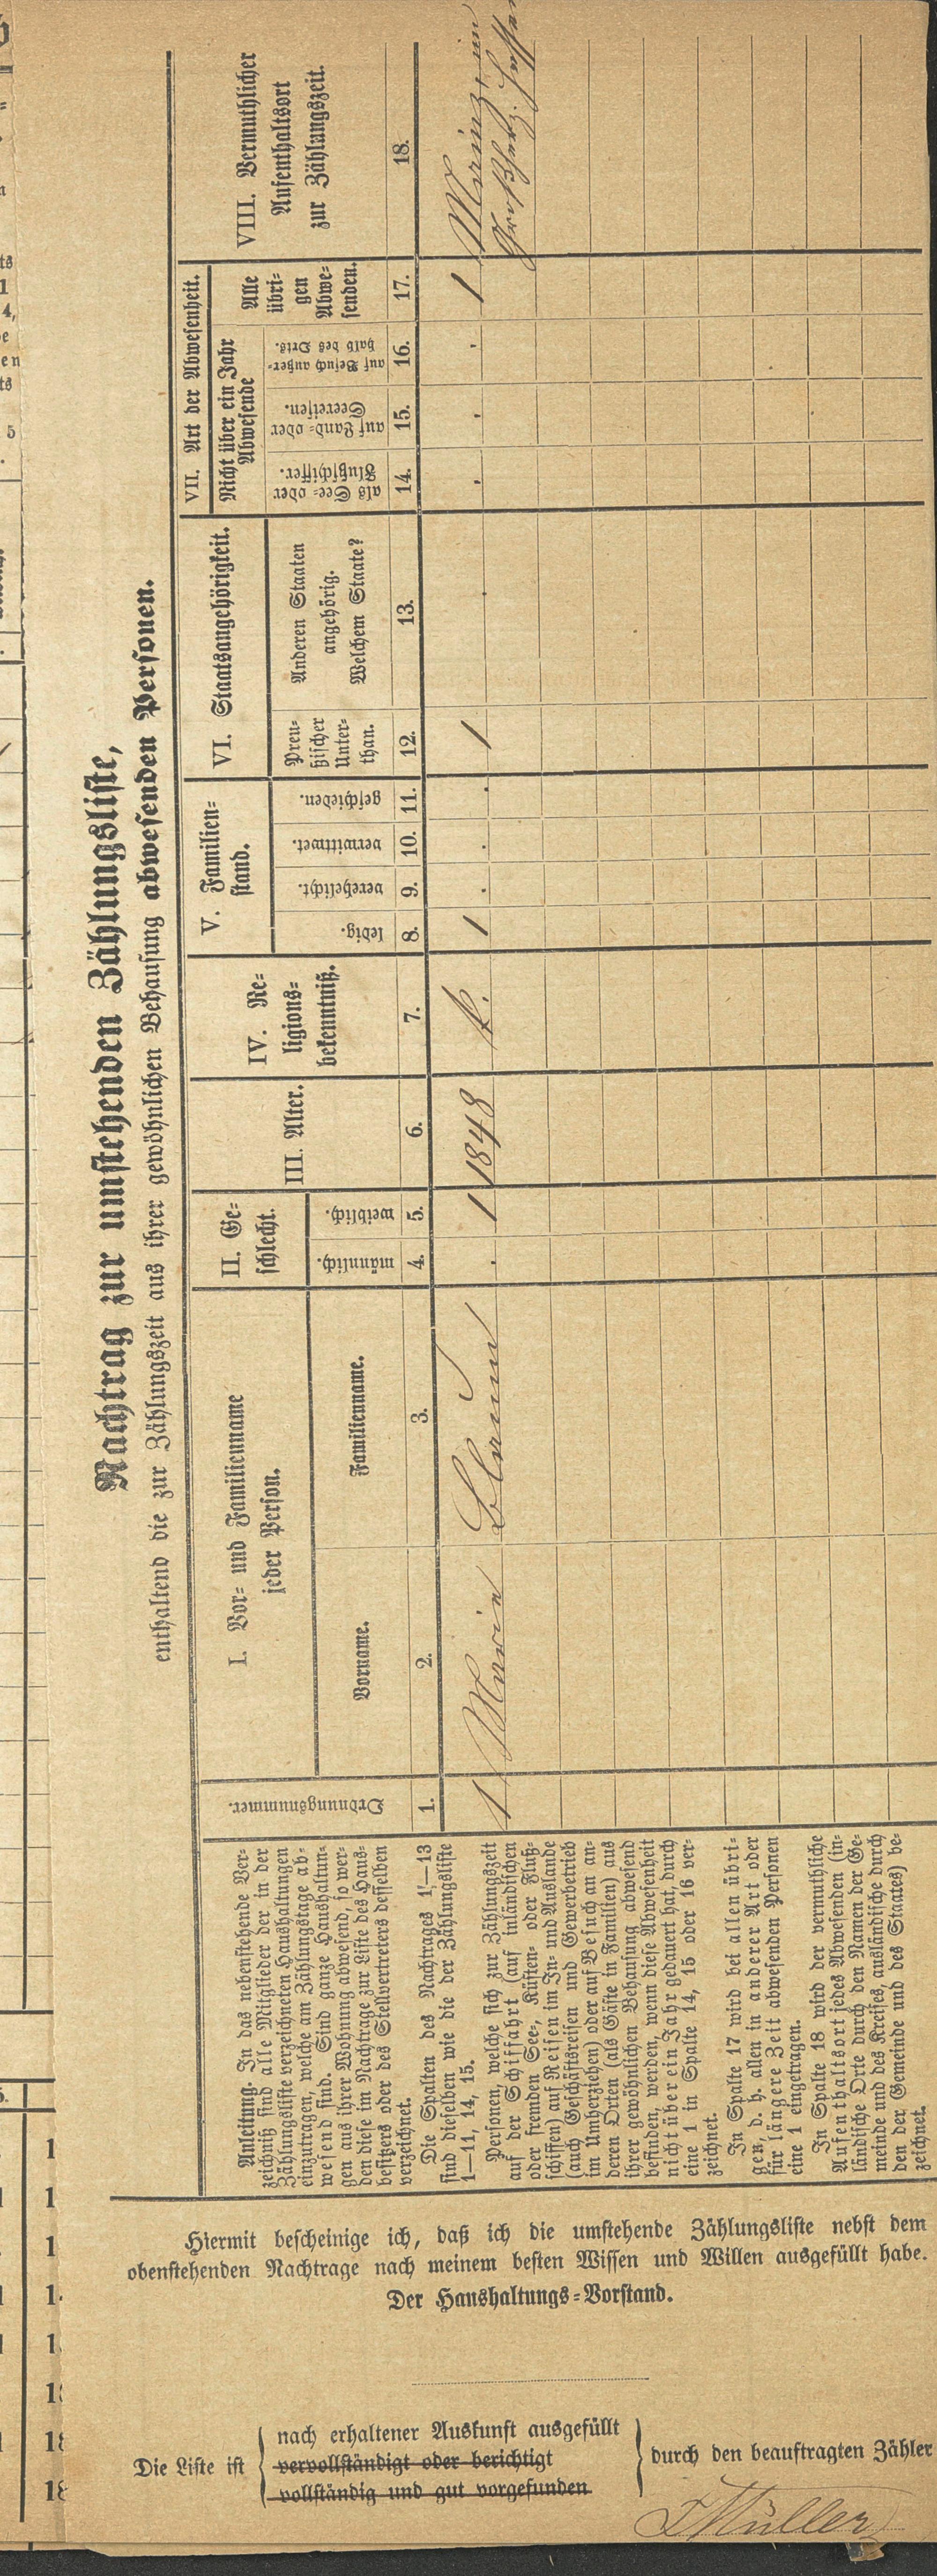 Nachtrag zur umstehenden Zählungsliste,
enthaltend die zur Zählungszeit aus ihrer gewöhnlichen Behausung abwesenden Personen.
Anleitung. In das nebenstehende Ver-
zeichniß sind alle Mitglieder der in der
Zählungsliste verzeichneten Haushaltungen
einzutragen, welche am Zählungstage ab-
wesend sind. Sind ganze Haushaltun-
gen aus ihrer Wohnung abwesend, so wer-
den diese im Nachtrage zur Liste des Haus-
besitzers oder des Stellvertreters desselben
verzeichnet.
Die Spalten des Nachtrages 1—13
sind dieselben wie die der Zählungsliste
1—11, 14, 15.
Personen, welche sich zur Zählungszeit
auf der Schiffahrt (auf inländischen
oder fremden See-, Küsten- oder Fluß-
schiffen) auf Reisen im In- und Auslande
(auch Geschäftsreisen und Gewerbetrieb
im Umherziehen) oder auf Besuch an an-
deren Orten (als Gäste in Familien) aus
ihrer gewöhnlichen Behausung abwesend
befinden, werden, wenn diese Abwesenheit
nicht über ein Jahr gedauert hat, durch
eine 1 in Spalte 14, 15 oder 16 ver-
zeichnet.
In Spalte 17 wird bei allen übri-
gen, d. h. allen in anderer Art oder
für längere Zeit abwesenden Personen
eine 1 eingetragen.
In Spalte 18 wird der vermuthliche
Aufenthaltsort jedes Abwesenden (in-
ländische Orte durch den Namen der Ge-
meinde und des Kreises, ausländische durch
den der Gemeinde und des Staates) be-
zeichnet.
Ordnungsnummer.
I. Vor- und Familienname
jeder Person.
Vorname.
Familienname.
II. Ge-
schlecht.
männlich.
weiblich.
III. Alter.
IV. Re-
ligions-
bekenntniß.
V. Familien-
stand.
ledig.
verehelicht.
verwittwet.
geschieden.
VI. Staatsangehörigkeit.
Preu-
ßischer
Unter-
than.
Anderen Staaten
angehörig.
Welchem Staate?
VII. Art der Abwesenheit.
Nicht über ein Jahr
Abwesende
als See- oder
Flußschiffer.
auf Land- oder
Seereisen.
auf Besuch außer-
halb des Orts.
Alle
übri-
gen
Abwe-
senden.
VIII. Vermuthlicher
Aufenthaltsort
zur Zählungszeit.
1. 2. 3. 4. 5. 6. 7. 8. 9. 10. 11. 12. 13. 14. 15. 16. 17. 18.
1 Maria . 1 1848 k. 1 . . . 1 . . . . 1 Mainz, im
Großherz. Hessen
Hiermit bescheinige ich, daß ich die umstehende Zählungsliste nebst dem
obenstehenden Nachtrage nach meinem besten Wissen und Willen ausgefüllt habe.
Der Haushaltungs-Vorstand.
Die Liste ist
nach erhaltener Auskunft ausgefüllt
vervollständigt oder berichtigt
vollständig und gut vorgefunden
durch den beauftragten Zähler
Müller